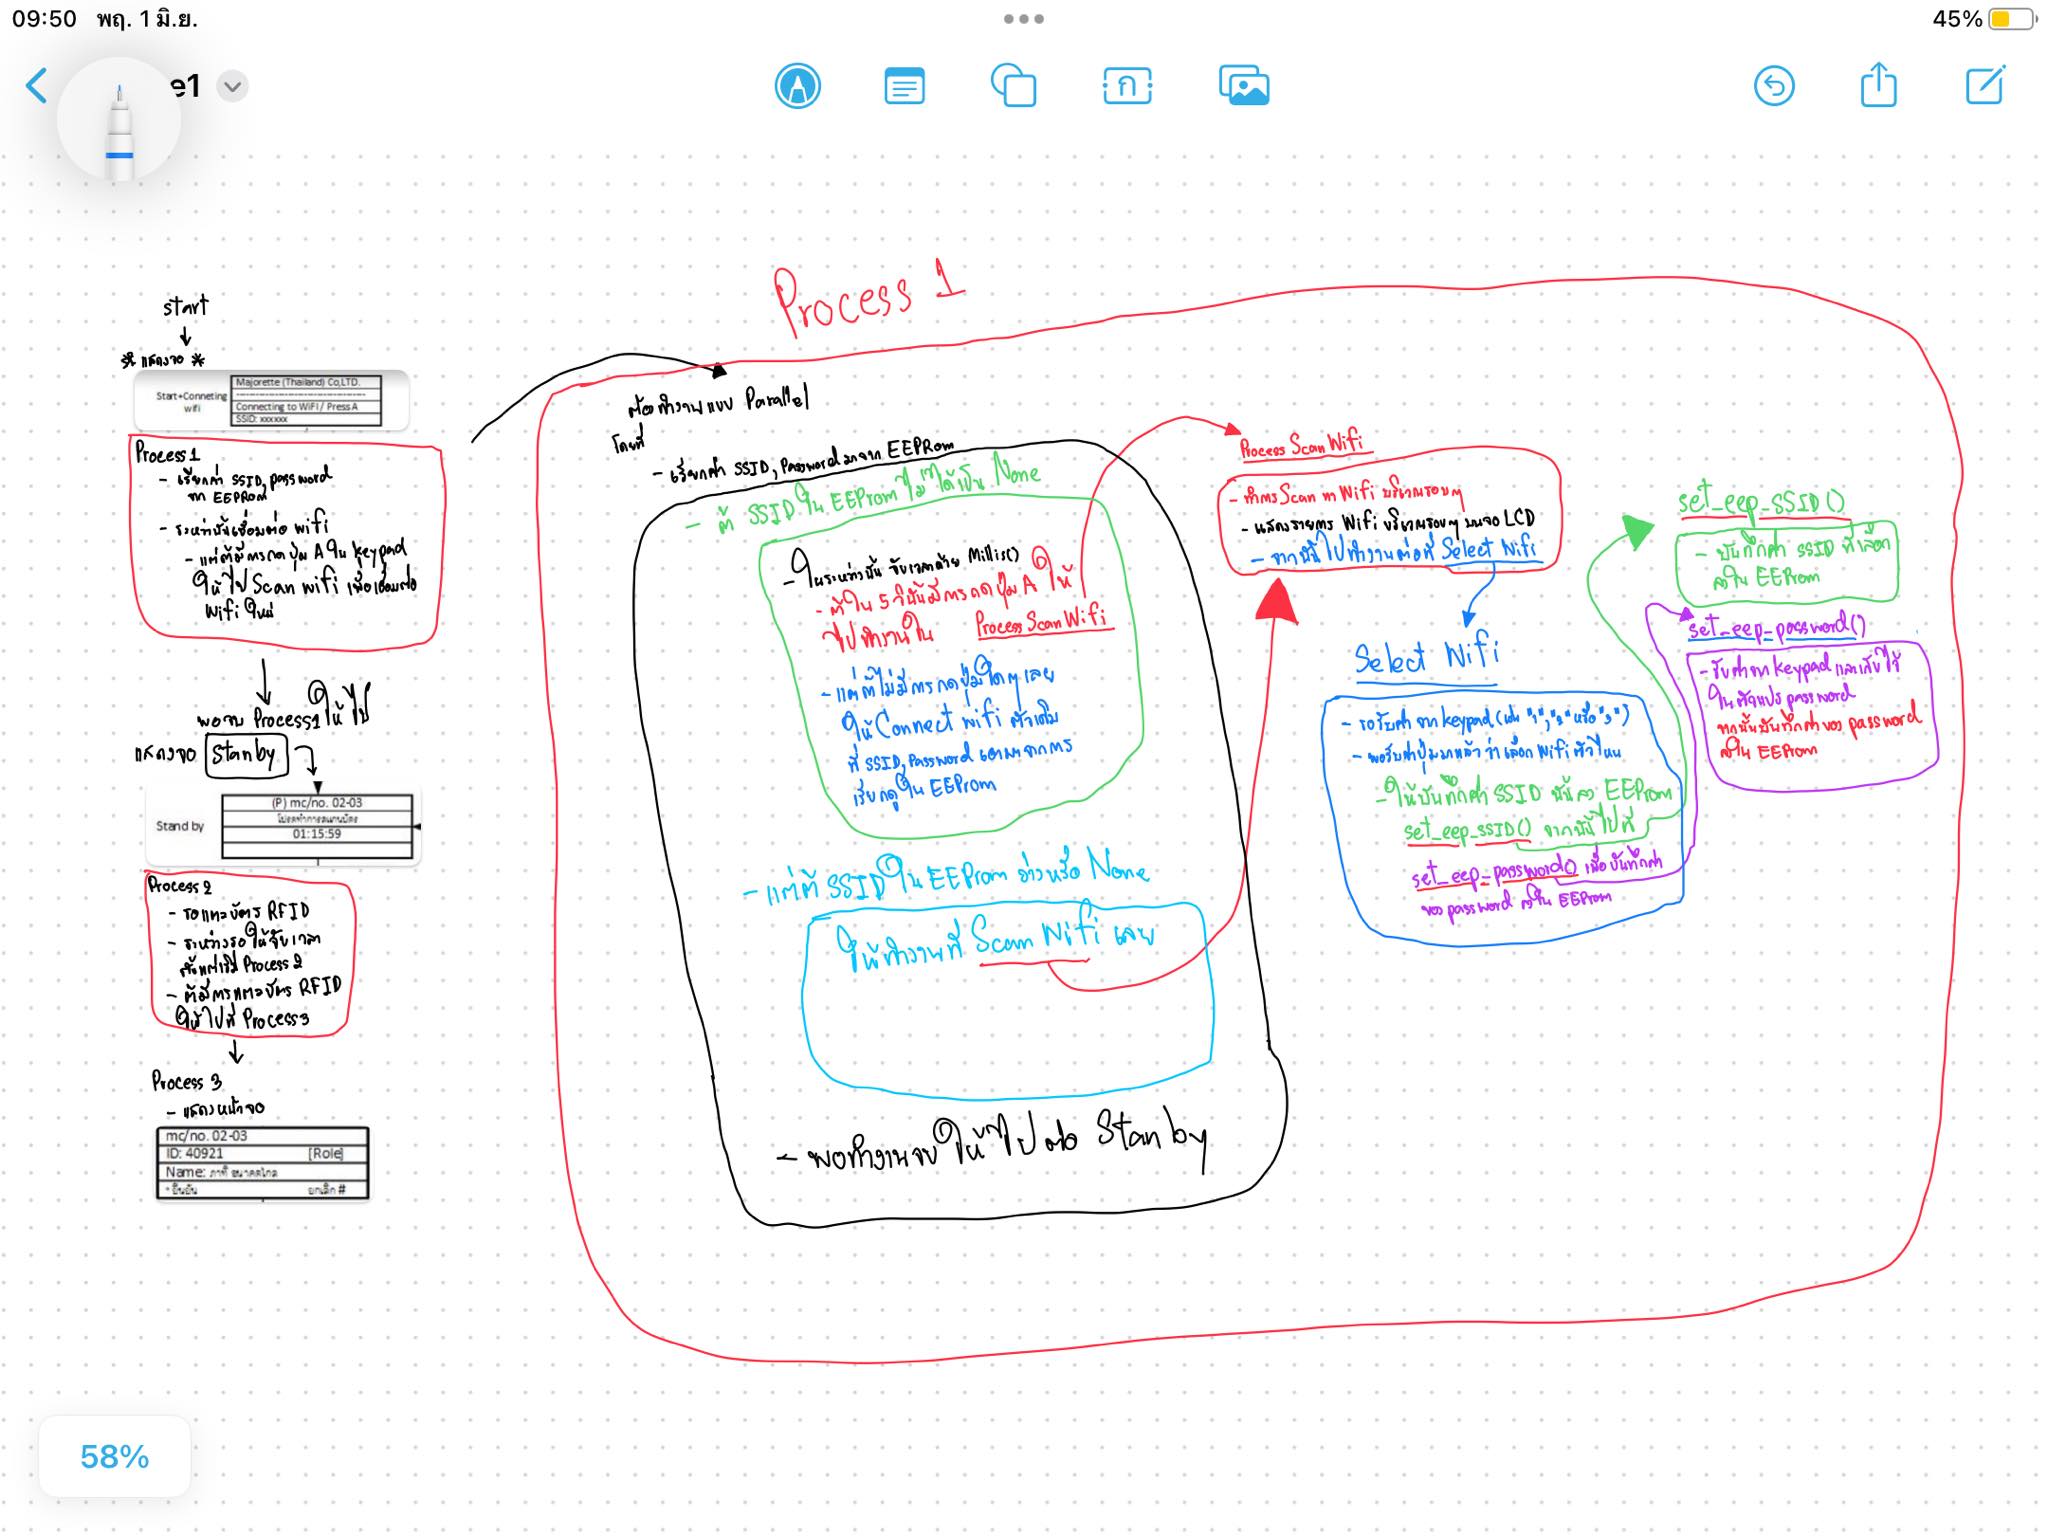 09:50 พฤ. 1 มิ.ย.
45%
e1
start
* แสดงจอ *
Start+Conneting wifi
Majorette (Thailand) Co,LTD.
Connecting to WiFi / Press A
SSID: xxxxxx
Process 1
- เรียกค่า SSID, password
จาก EEPROM
- ระหว่างนั้นเชื่อมต่อ wifi
- แต่ถ้ามีการกดปุ่ม A ใน keypad
ให้ไป Scan wifi เพื่อเชื่อมต่อ
Wifi ใหม่
พอจบ Process1 ให้ไป
แสดงจอ Stanby
Stand by
(P) mc/no. 02-03
โปรดทำการสแกนบัตร
01:15:59
Process 2
- รอแตะบัตร RFID
- ระหว่างรอให้จับเวลา
ตั้งแต่เริ่ม Process 2
- ถ้ามีการแตะบัตร RFID
ให้ไปที่ Process3
Process 3
- แสดงหน้าจอ
mc/no. 02-03
ID: 40921 [Role]
Name:
* ยืนยัน ยกเลิก #
Process 1
ต้องทำงานแบบ Parallel
โดยที่
- เรียกค่า SSID, Password มาจาก EEPRom
- ถ้า SSID ใน EEProm ไม่ได้เป็น None
- ในระหว่างนั้น จับเวลาด้วย Millis()
- ถ้าใน 5 วินั้นมีการกดปุ่ม A ให้
ไปทำงานใน Process Scan Wifi
- แต่ถ้าไม่มีการกดปุ่มใดๆเลย
ให้ Connect wifi ตัวเดิม
ที่ SSID, Password เอามาจากการ
เรียกดูใน EEProm
- แต่ถ้า SSID ใน EEProm ว่างหรือ None
ให้ทำงานที่ Scan Wifi เลย
- พอทำงานจบ ให้ไปต่อ Stanby
Process Scan Wifi
- ทำการ Scan หา Wifi บริเวณรอบๆ
- แสดงรายการ Wifi บริเวณรอบๆ บนจอ LCD
- จากนั้นไปทำงานต่อที่ Select Wifi
Select Wifi
- รอรับค่าจาก keypad (เช่น "1","2" หรือ "3")
- พอรับค่าปุ่มมาแล้ว ว่าเลือก Wifi ตัวไหน
- ให้บันทึกค่า SSID นั้นลง EEProm
set_eep_SSID() จากนั้นไปที่
set_eep_password() เพื่อบันทึกค่า
ของ password ลงใน EEProm
set_eep_SSID()
- บันทึกค่า SSID ที่เลือก
ลงใน EEProm
set_eep_password()
- รับค่าจาก keypad และเก็บไว้
ในตัวแปร password
จากนั้นบันทึกค่าของ password
ลงใน EEProm
58%